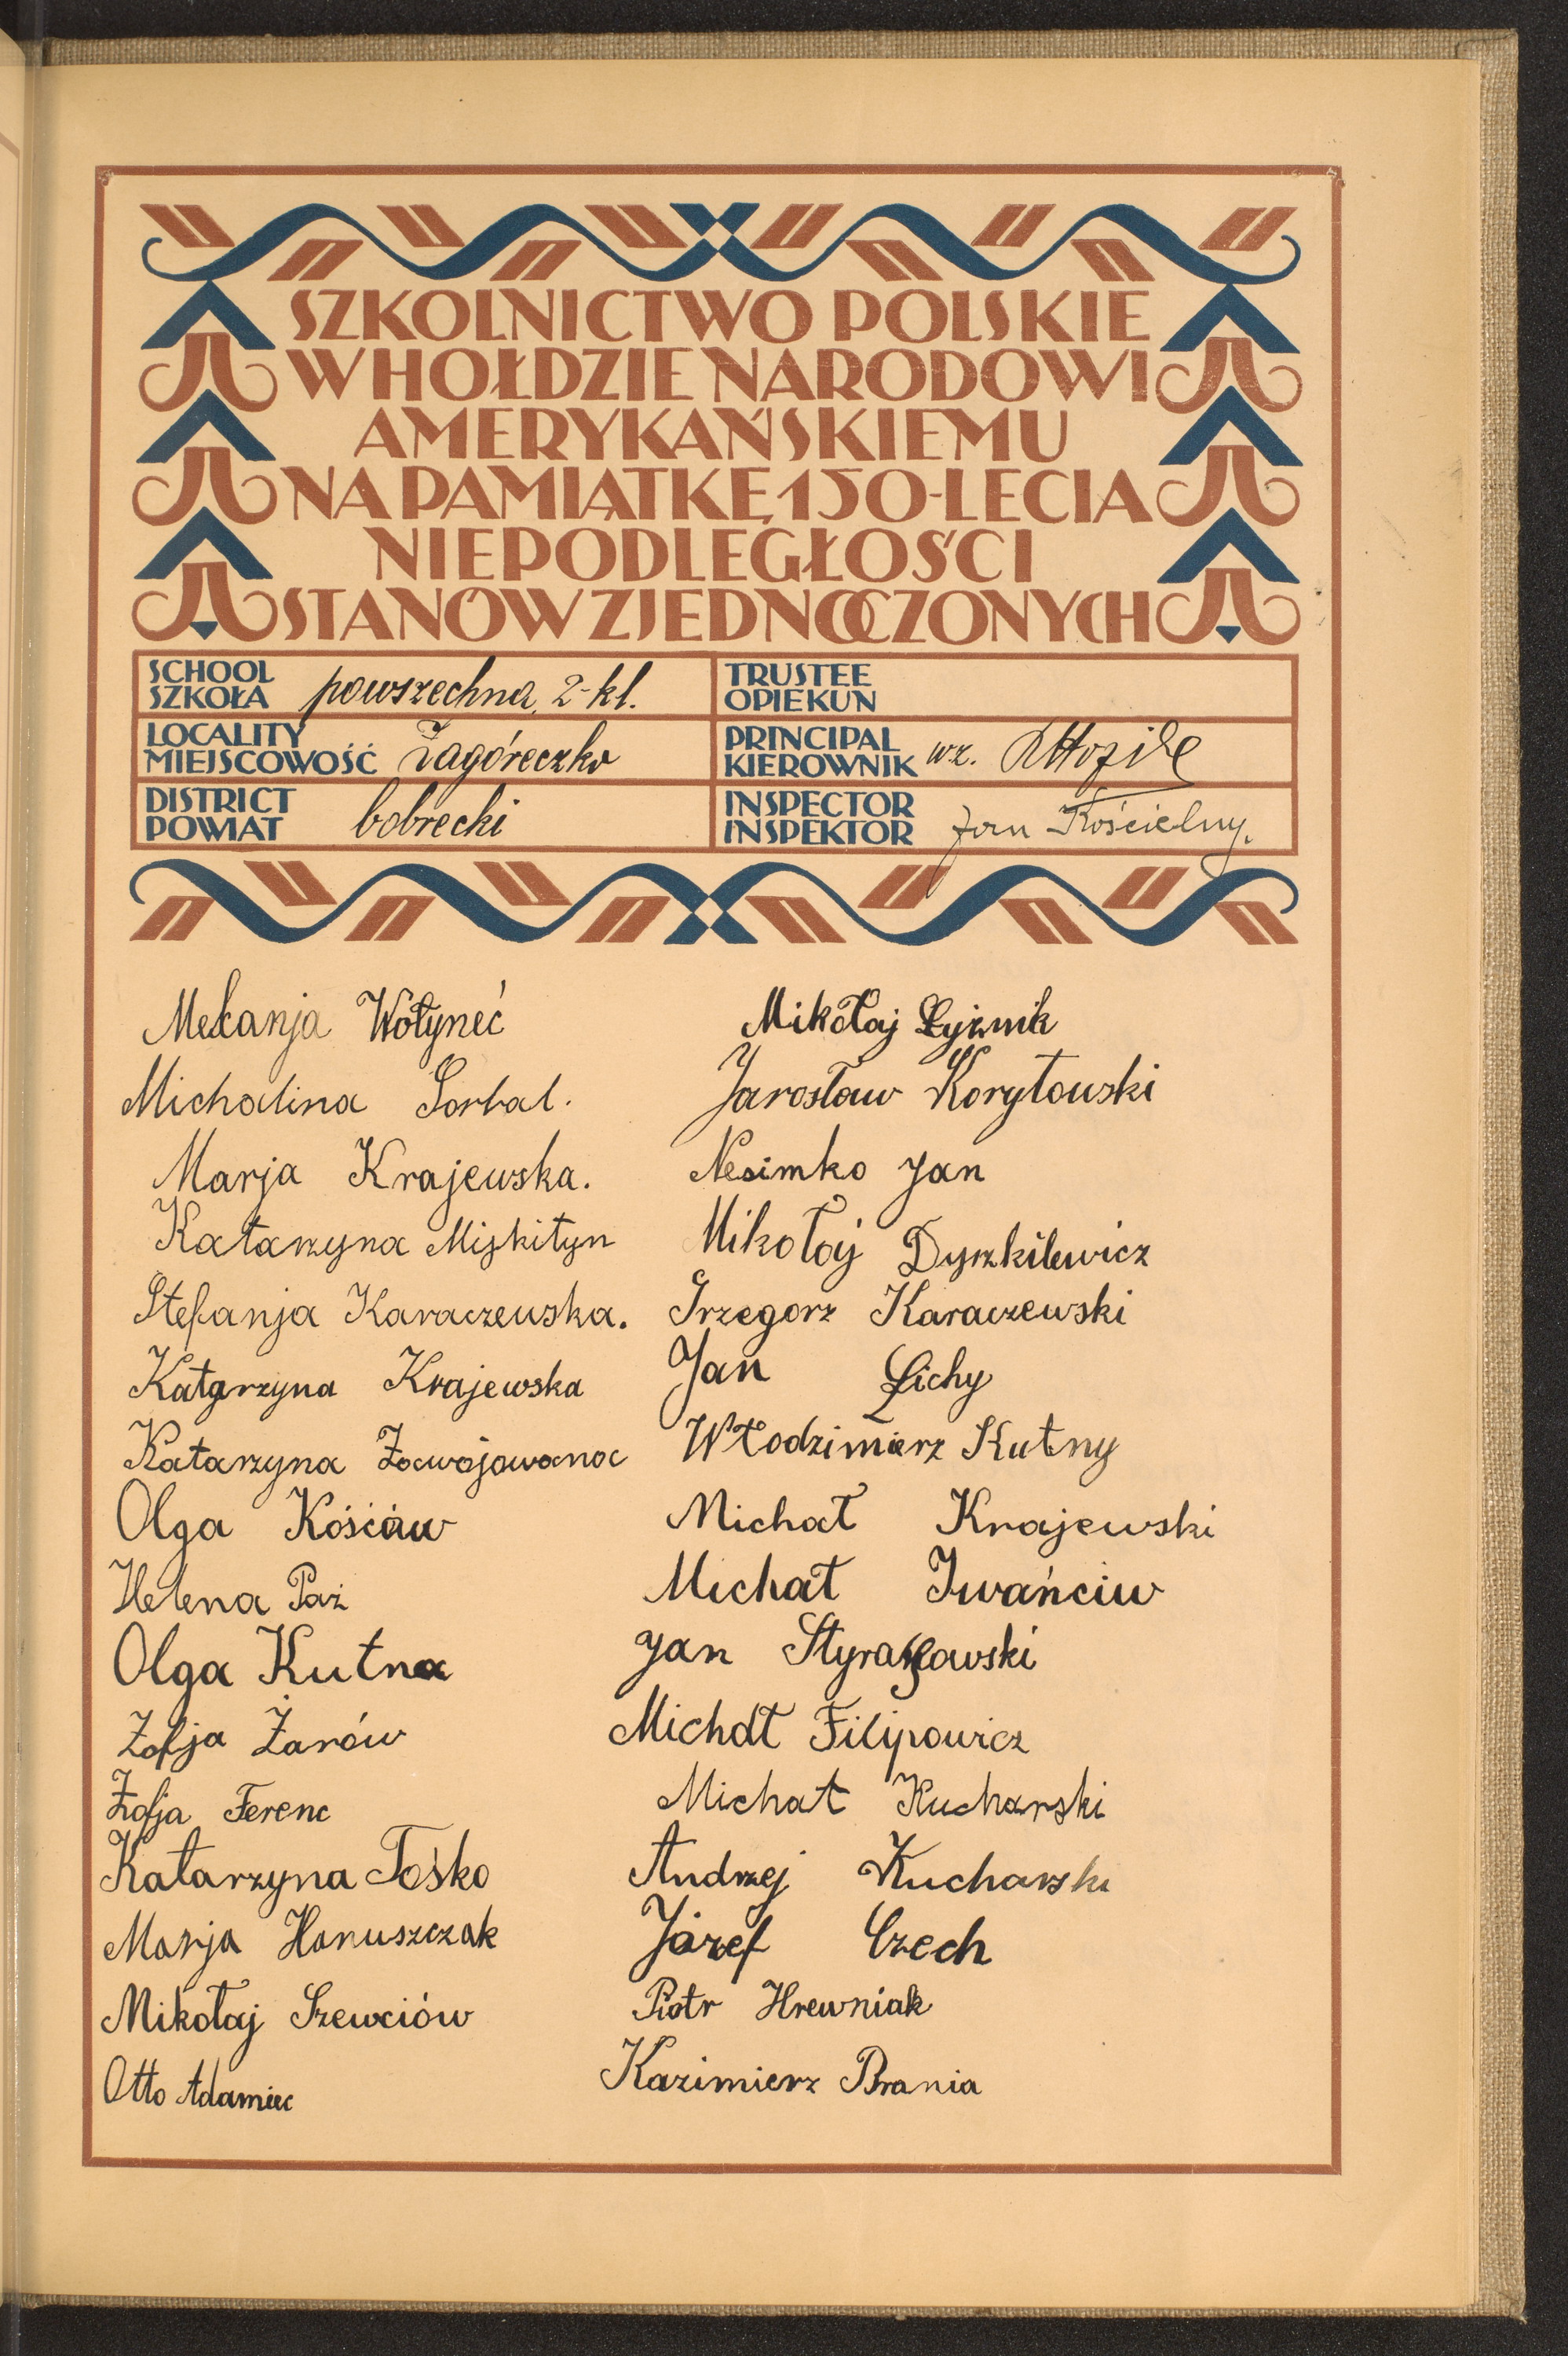 SZKOLNICTWO POLSKIE
W HOŁDZIE NARODOWI
AMERYKAŃSKIEMU
NA PAMIĄTKĘ 150-LECIA
NIEPODLEGŁOŚCI
STANÓW ZJEDNOCZONYCH
SCHOOL
SZKOŁA powszechna, 2-kl.
TRUSTEE
OPIEKUN
LOCALITY
MIEJSCOWOŚĆ Zagóreczko
PRINCIPAL
KIEROWNIK wz.
DISTRICT
POWIAT bobrecki
INSPECTOR
INSPEKTOR Jan Kościelny.
Melanja Wołyneć
Michalina Sorbal.
Marja Krajewska.
Katarzyna Miskityn
Stefanja Karaczewska.
Katarzyna Krajewska
Katarzyna
Olga Kośćów
Helena Paź
Olga Kutna
Zofja Żarów
Zofja Ferenc
Katarzyna Tośko
Marja Hanuszczak
Mikołaj Szewciów
Otto Adamiec
Mikołaj Łyżnik
Jarosław Korytowski
Nesimko Jan
Mikołaj Dyszkilewicz
Grzegorz Karaczewski
Jan Lichy
Włodzimierz Kutny
Michał Krajewski
Michał Iwańciw
Jan
Michał Filipowicz
Michał Kucharski
Andrzej Kucharski
Józef Czech
Piotr Hrewniak
Kazimierz Brania